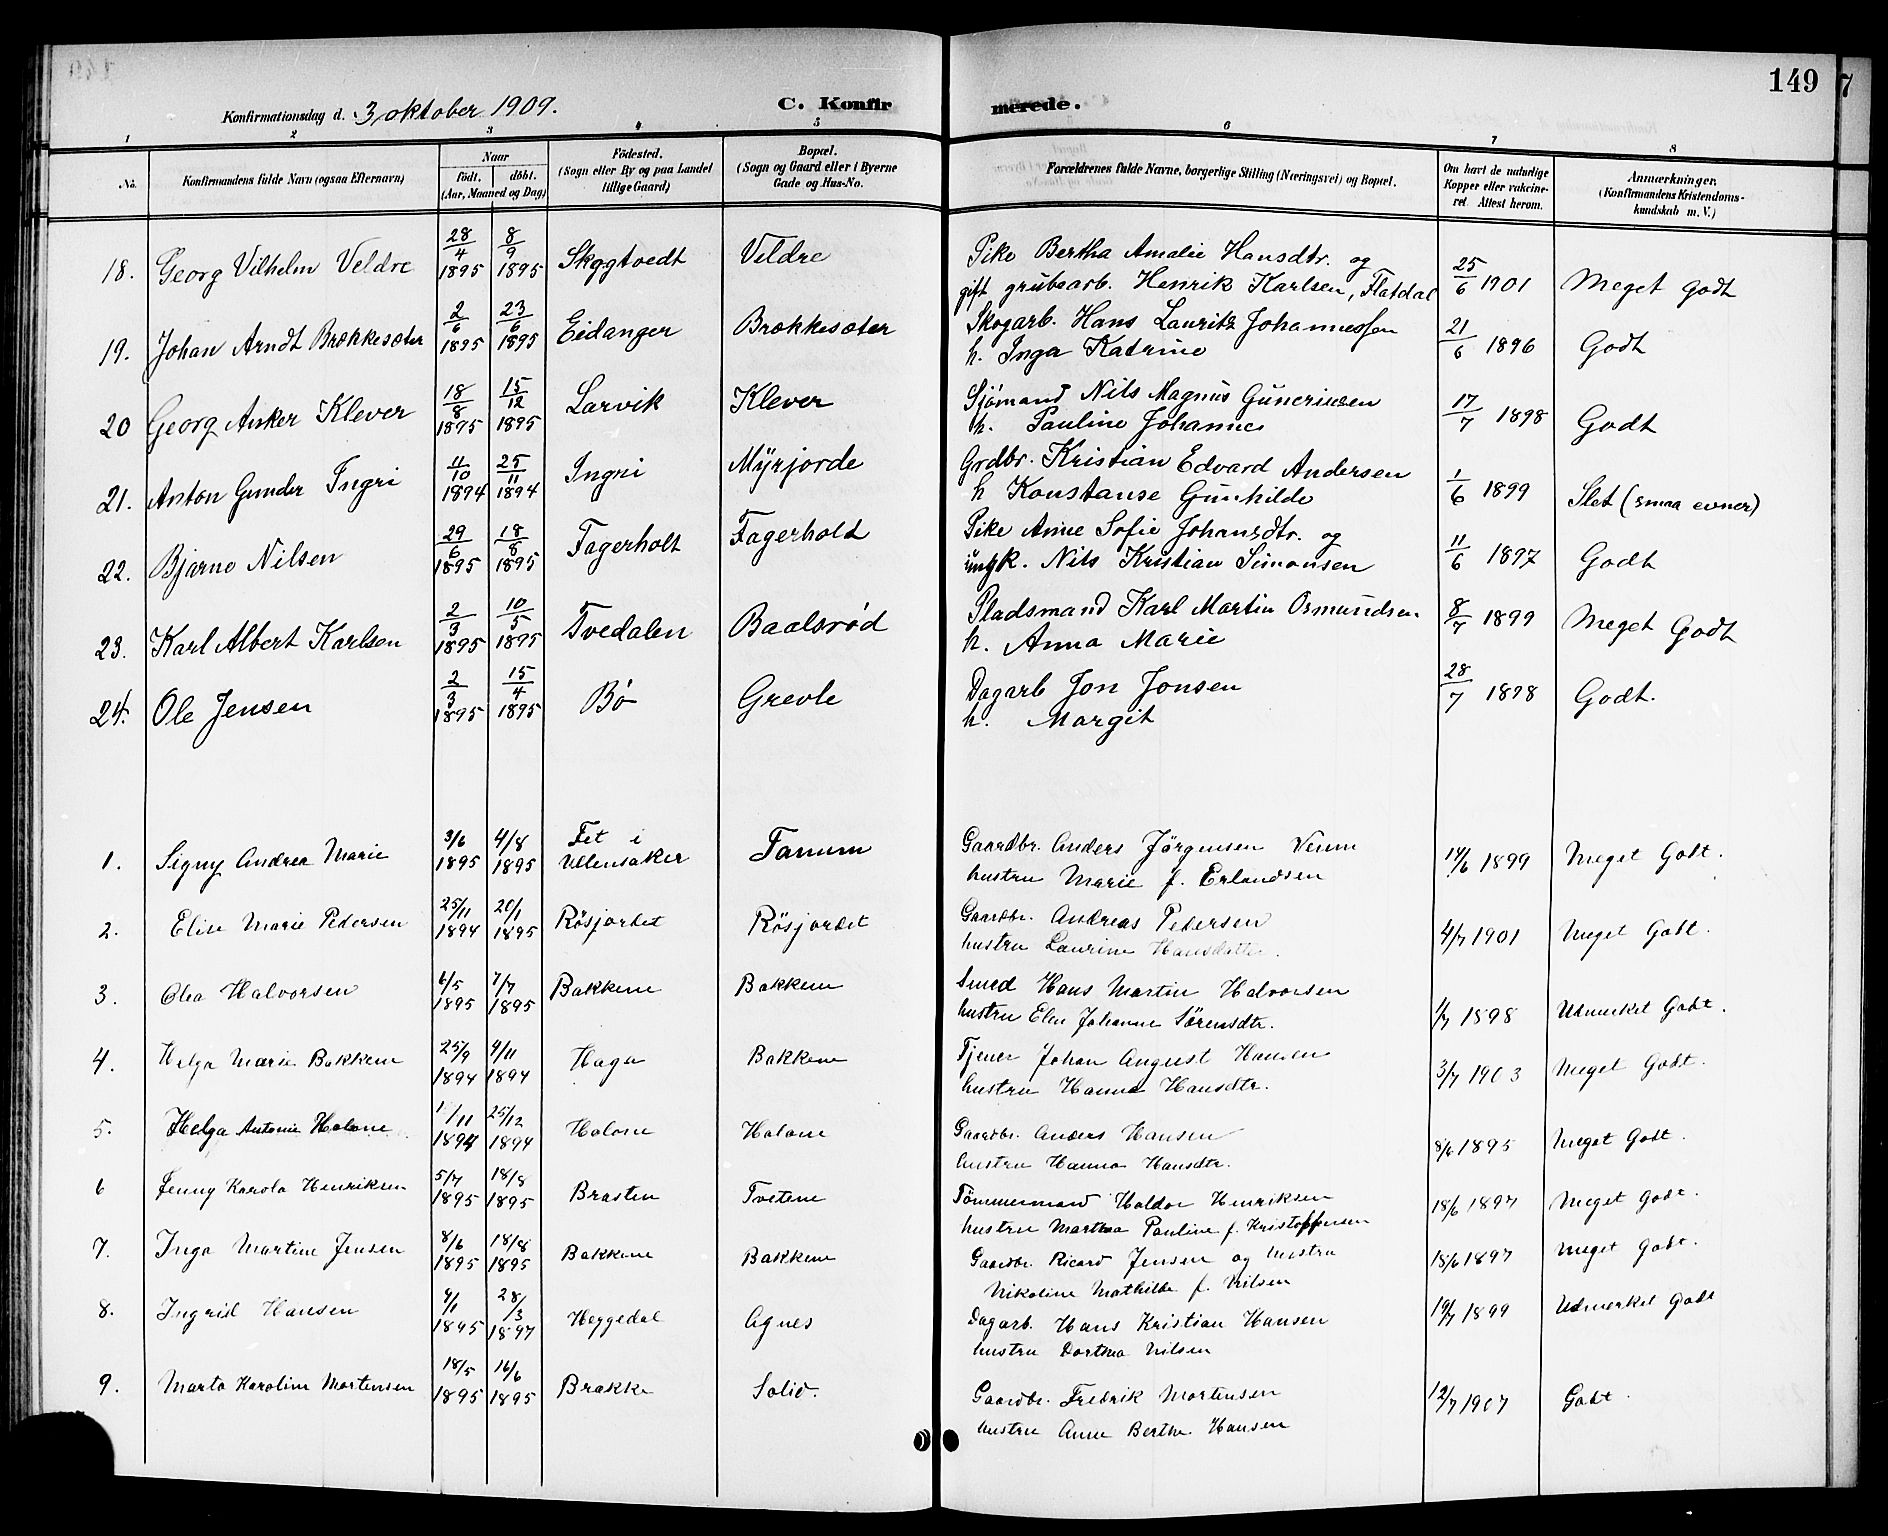 149
7
Konfirmationsdag d. 3 oktober 1909.
C. Konfir
merede.
1 2 3 4 5 6 7 8
No.
Konfirmandens fulde Navn (ogsaa Efternavn)
Naar
födt. döbt.
(Aar, Maaned og Dag)
Födested.
(Sogn eller By og paa Landet
tillige Gaard)
Bopæl.
(Sogn og Gaard eller i Byerne
Gade og Hus-No.
Forældrenes fulde Navne, borgerlige Stilling (Næringsvei) og Bopæl.
Om havt de naturlige
Kopper eller vakcine-
ret. Attest herom.
Anmærkninger.
(Konfirmandens Kristendoms-
kundskab m. V.)
18. Georg Vilhelm Veldre 28/4 1895 8/9 1895 Skggtvedt Veldre Pike Bertha Amalie Hansdtr. og
gift grubearb. Henrik Karlsen, Flatdal 25/6 1901 Meget godt
19. Johan Arndt Brækkesæter 2/6 1895 23/6 1895 Eidanger Brækkesæter Skogarb. Hans Lauritz Johannessen
h. Inga Katrine 21/6 1896 Godt
20 Georg Anker Klever 18/8 1895 15/12 1895 Larvik Klever Sjömand Nils Magnus Guneriusen
h. Pauline Johanne 17/7 1898 Godt
21. Anton Gunder Ingri 11/10 1894 25/11 1894 Ingri Myrjorde Grdbr. Kristian Edvard Andersen
h Konstanse Gunhilde 1/6 1899 Slet (smaa evner)
22. Bjarne Nilsen 29/6 1895 18/8 1895 Fagerholt Fagerhold Pike Anne Sofie Johansdtr. og
ungk. Nils Kristian Simonsen 11/6 1897 Godt
23. Karl Albert Karlsen 2/3 1895 10/5 1895 Tvedalen Baalsrød Pladsmand Karl Martin Osmundsen
h. Anna Marie 8/7 1899 Meget Godt
24. Ole Jensen 2/3 1895 15/4 1895 Bö Grevle Dagarb Jon Jonsen
h. Margit 28/7 1898 Godt.
1. Signy Andrea Marie 3/6 1895 4/8 1895 Fet i Ullensaker Tanum Gaardbr. Anders Jørgensen
hustru Marie f. Erlandsen 14/6 1899 Meget Godt.
2. Elise Marie Pedersen 25/11 1894 20/1 1895 Røsjordet Røsjordet Gaardbr. Andreas Pedersen
hustru Laurine Hansdatter. 4/7 1901 Meget Godt.
3. Olea Halvorsen 6/5 1895 7/7 1895 Bakkene Bakken Smed Hans Martin Halvorsen
hustru Elen Johanne Sørensdtr. 1/7 1898 Udmerket Godt.
4. Helga Marie Bakkene 25/9 1894 4/11 1894 Haga Bakkene Tjener Johan August Hansen
hustru Hanna Hansdtr. 3/7 1903 Meget Godt.
5. Helga Antonie Holane 1/11 1894 25/12 1894 Holane Holane Gaardbr. Anders Hansen
hustru Hanna Hansdtr. 8/6 1895 Meget Godt.
6 Jenny Karola Henriksen 5/7 1895 18/8 1895 Brasten Tvetene Tømmermand Haldor Henriksen
hustru Martha Pauline f. Kristoffersen 18/6 1897 Meget Godt.
7. Inga Martine Jensen 8/6 1895 18/8 1895 Bakkene Bakkene Gaardbr. Ricard Jensen og hustru
Nikoline Mathilde f. Nilsen 15/6 1897 Meget Godt.
8. Ingrid Hansen 9/1 1895 28/3 1897 Heggedal Agnes Dagarb. Hans Kristian Hansen
hustru Dorthea Nilsen 19/7 1899 Udmerket Godt
9. Marta Karoline Mortensen 18/5 1895 16/6 1895 Brække Solid. Gaardbr. Fredrik Mortensen
hustru Anne Berthe Hansen 12/7 1907 Godt.